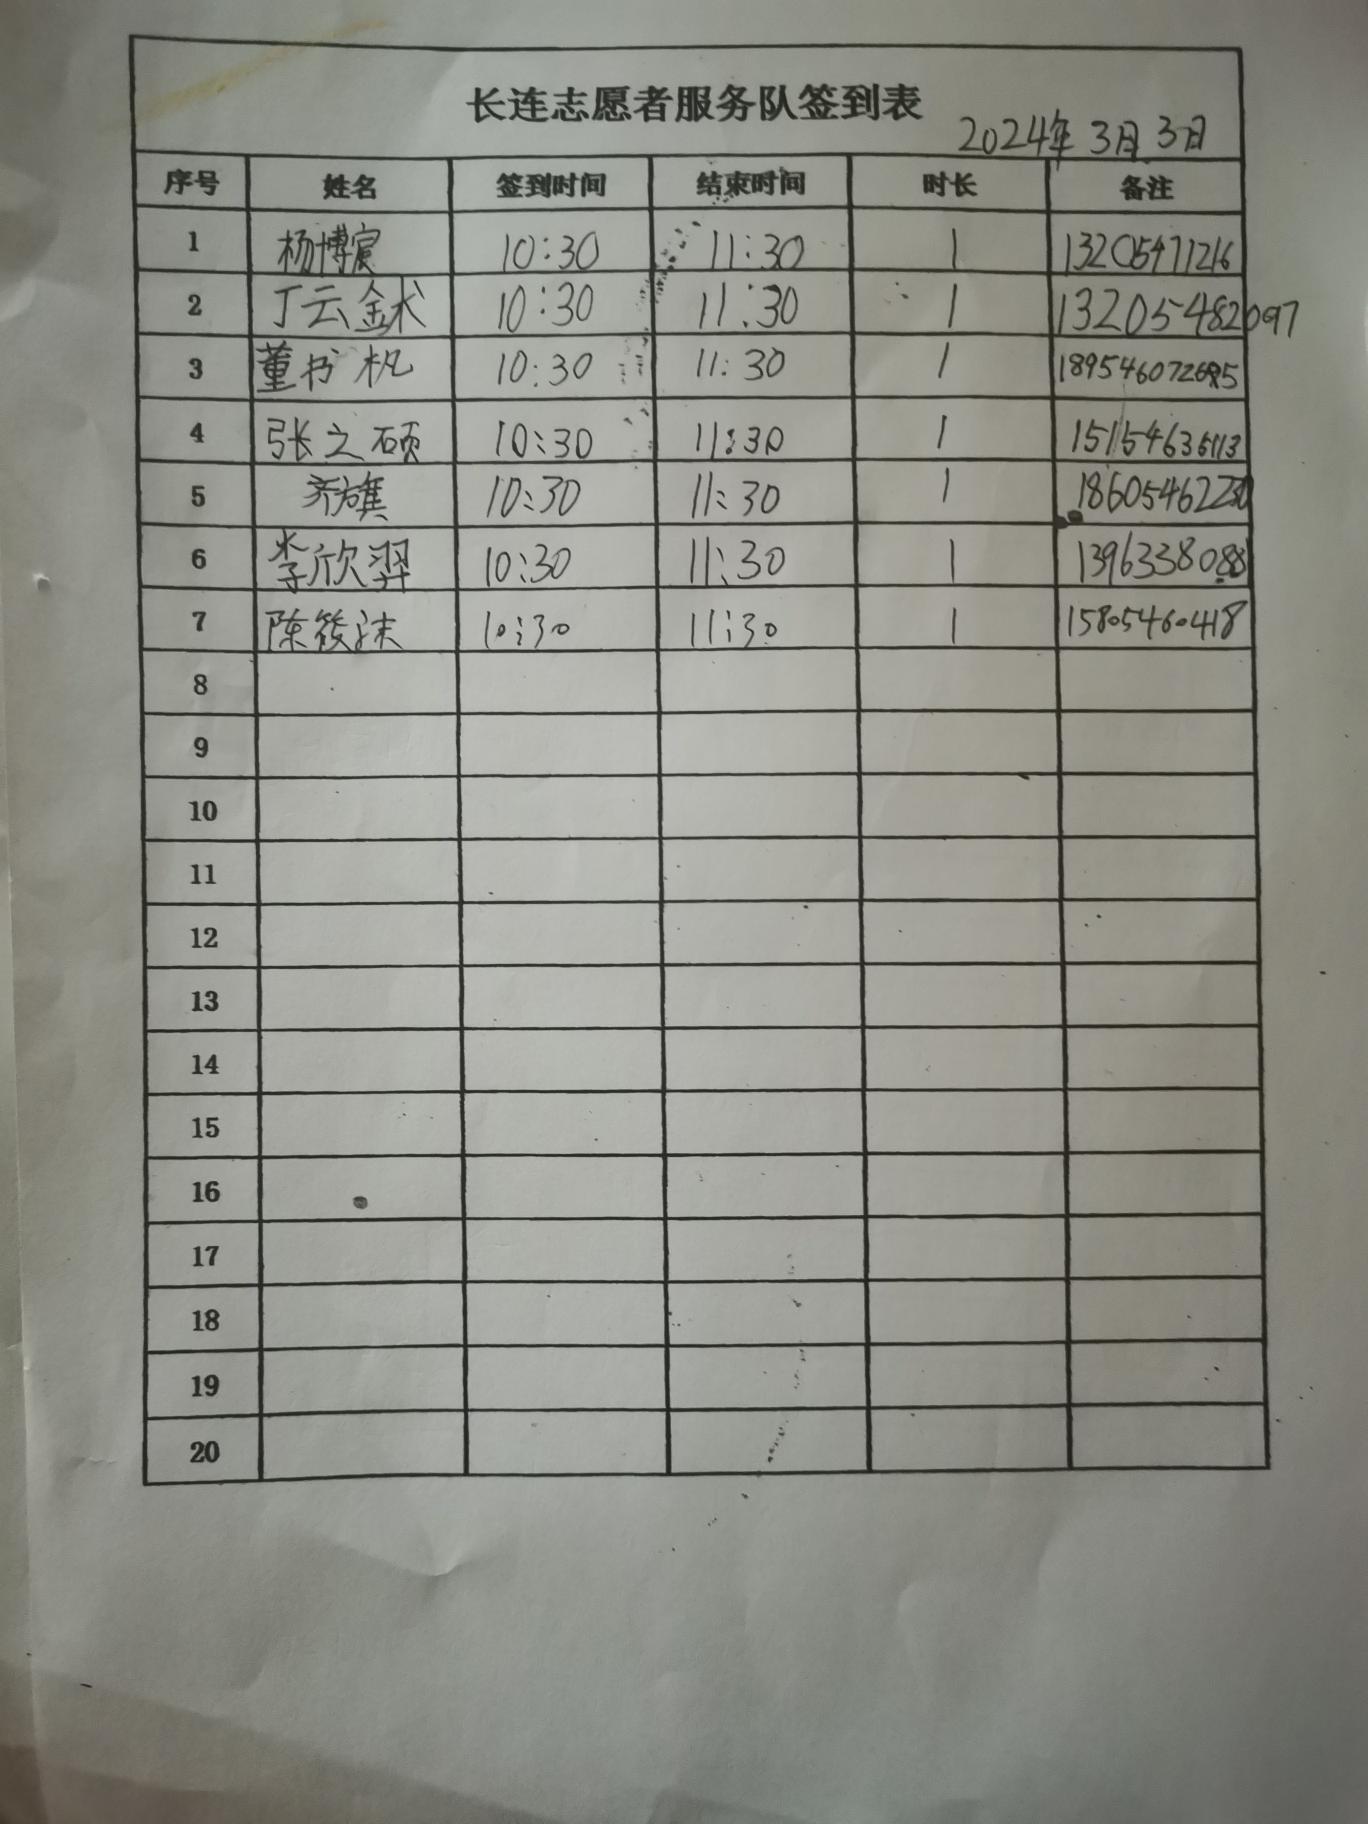 长连志愿者服务队签到表
2024年3月3日
序号 姓名 签到时间 结束时间 时长 备注
1 杨博宸 10:30 11:30 1 13205471216
2 丁云鉥 10:30 11:30 1 13205482097
3 董书杋 10:30 11:30 1
4 张之硕 10:30 11:30 1
5 齐旗 10:30 11:30 1
6 李欣羿 10:30 11:30 1
7 陈筱沫 10:30 11:30 1 15805460418
8
9
10
11
12
13
14
15
16
17
18
19
20